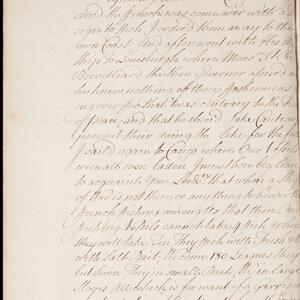 and the french was come over with a
sign to fish I order'd them away to the
own Coast And after went with His M
Ship to Louisburgh where Mons.r St.
Brouilliard the then Governor assur'd m
he knew nothing of those fishermens
ing over for that twas contrary to the
of peace and that he would take Caution
prevent their doing the like for the fu
I sail'd again to Canco where Our Vessels
were all soon laden Gives then beg leav
to acquaint Your Lord.ps that when a Ship
of War is not there or any thing to hinder the
french fishing amongst Us that then Our
fishing Vessels cannot take fish
they will take Ten They fish with fresh
with Salt Bait He come 180 Leagues they
but down They in small Boats, We in large
Sloops All which is for want of a Garris